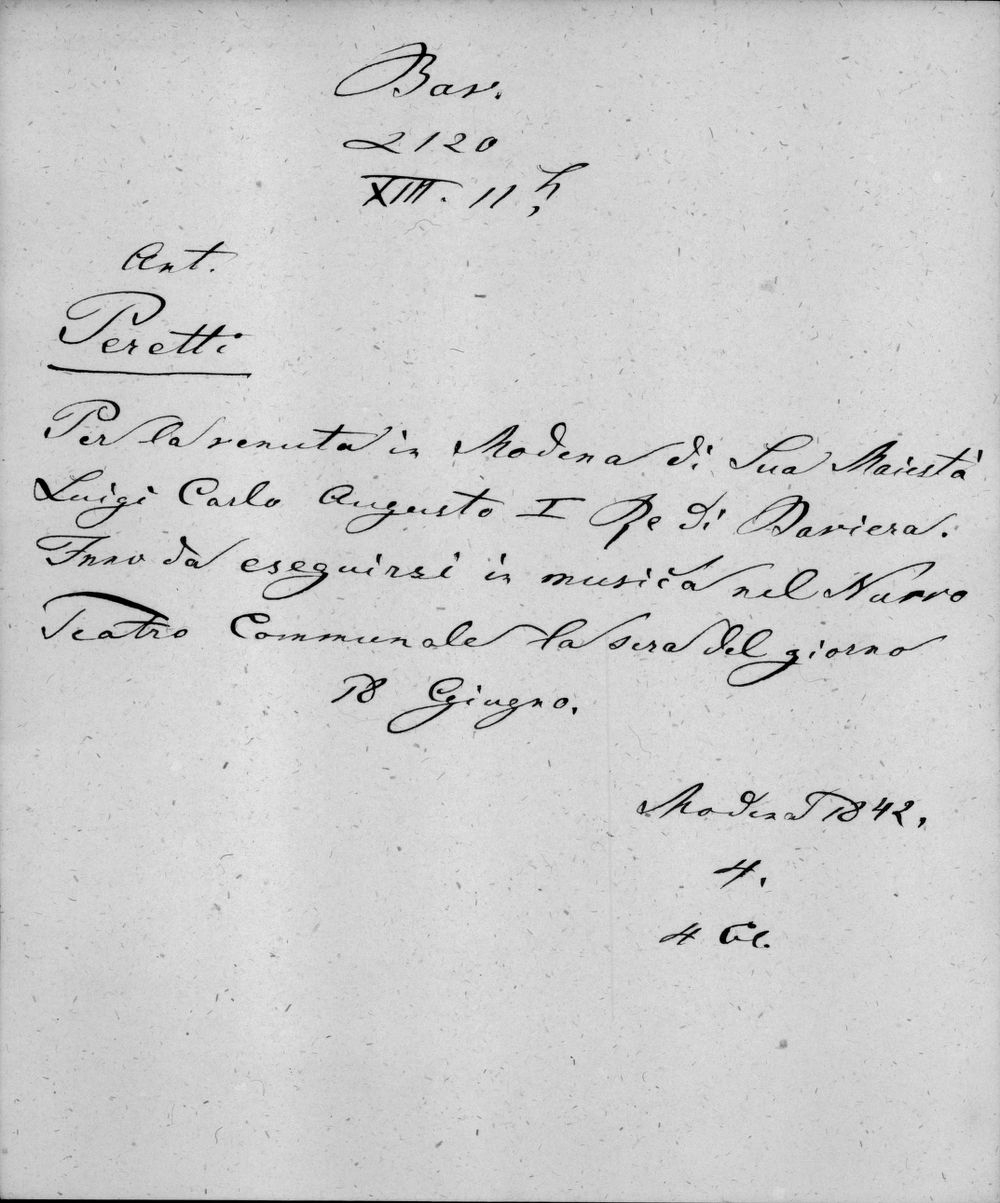 Bav.
2120
XIII. 11 h,
Ant.
Peretti
Per la venuta in Modena di Sua Maiestà
Luigi Carlo Augusto I Re di Baviera.
Inno da eseguirsi in musica nel Nuovo
Teatro Communale la sera del giorno
18 Giugno.
Modena 1842.
4.
4 Bl.